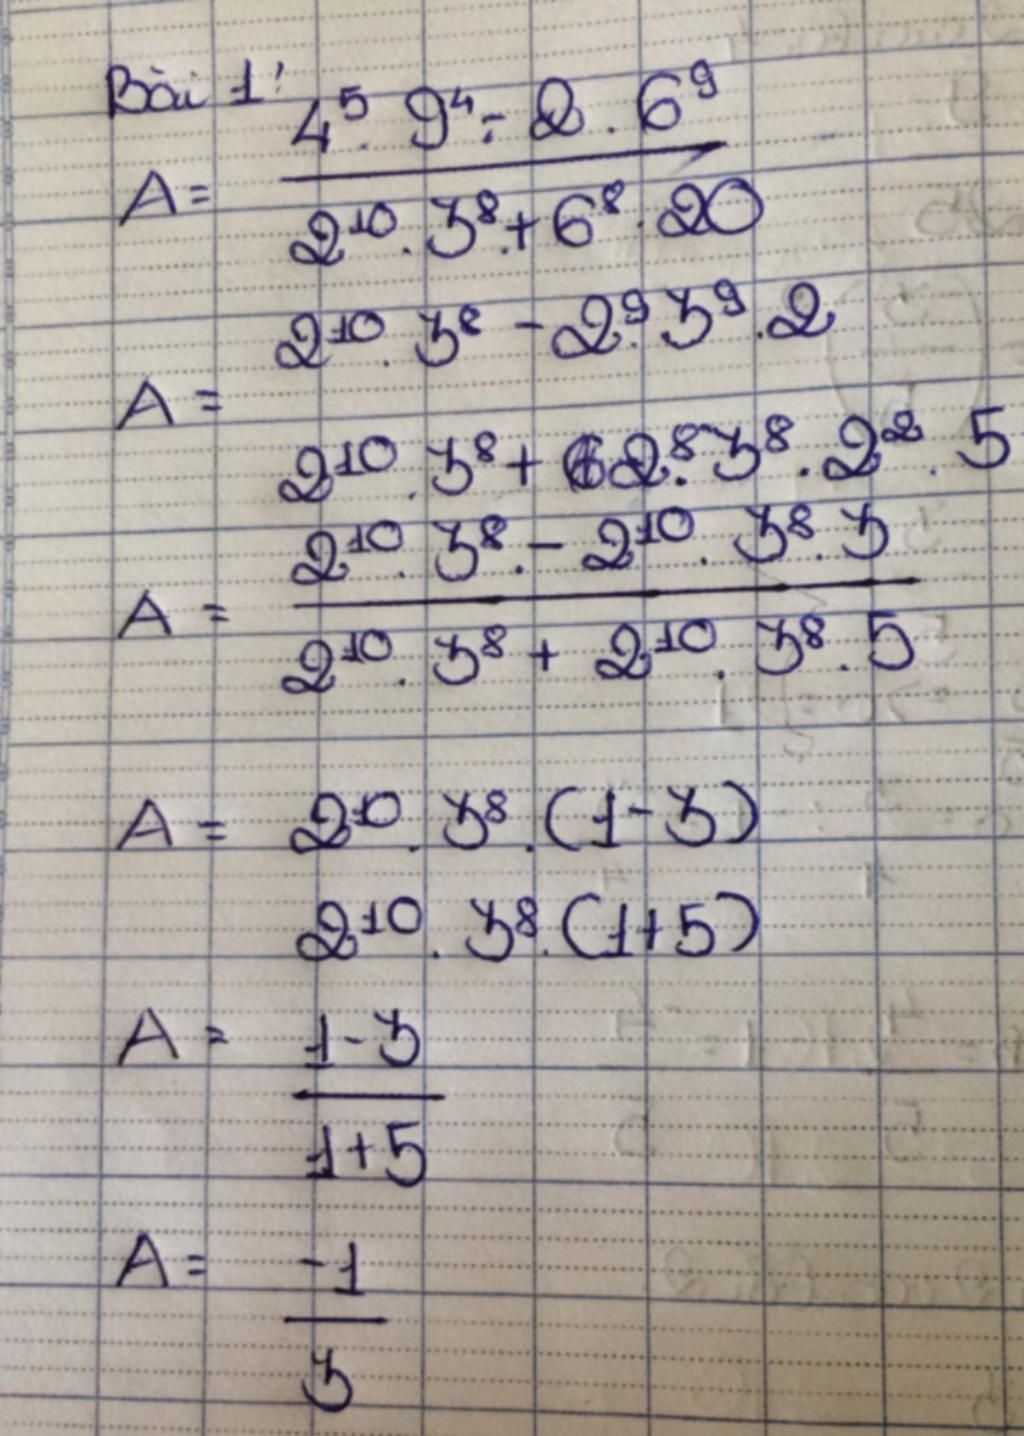 Bài 1:
4⁵. 9⁴ - 2 . 6⁹
A =
2¹⁰. 3⁸ + 6⁸ . 20
2¹⁰. 3⁸ - 2⁹. 3⁹. 2
A =
2¹⁰. 3⁸ + 2⁸. 3⁸. 2² . 5
2¹⁰. 3⁸. - 2¹⁰. 3⁸. 3
A =
2¹⁰. 3⁸ + 2¹⁰. 3⁸. 5
A = 2¹⁰. 3⁸. (1-3)
2¹⁰. 3⁸. (1+5)
A = 1-3
1+5
A = -1
3